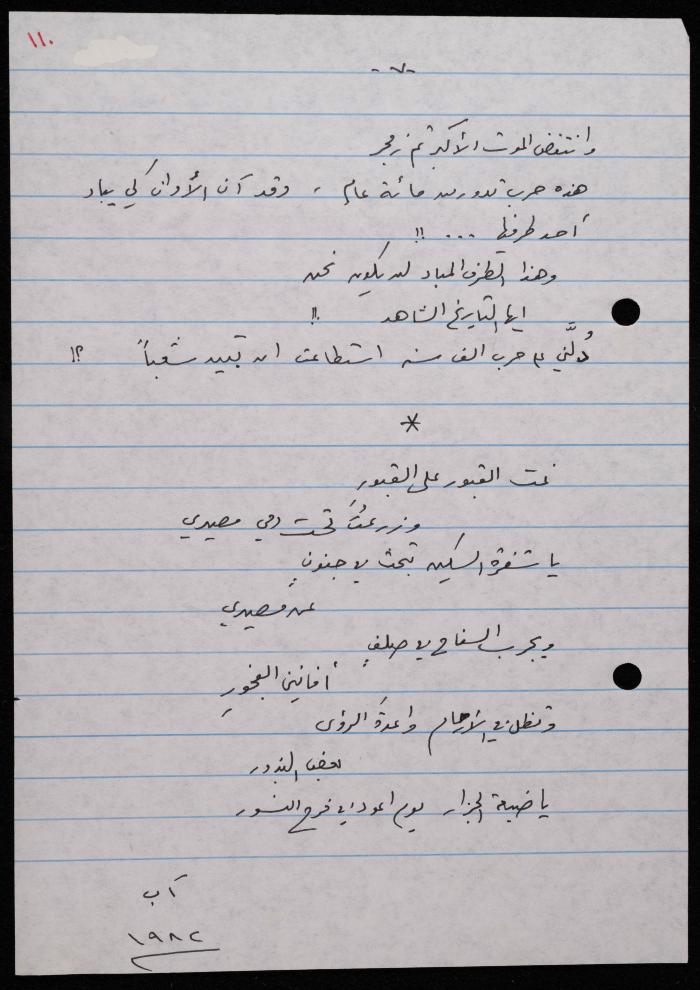 ١١٠
-٧-
وانتفض الموت الأكبر ثم زمجر
هذه حرب تدور منذ مائة عام ، وقد آن الأوان لكي يباد
أحد طرفيها ... !!
وهذا الطرف المباد لن يكون نحن
ايها التاريخ الشاهد !!
دُلَّني على حرب الف سنه استطاعت ان تبيد شعباً ؟!
*
نمت القبور على القبور
وزرعتُ تحت دمي مصيري
يا شفرة السكين تبحث في جنونٍ
عن مصيري
ويجرب السفاح في صلفٍ
أفانين الفجورِ
وتظل في الأرحام واعدة الرؤى
بعض البذور
يا ضيعة الجزار يوم اعود في فرح النسور
آب
١٩٨٢